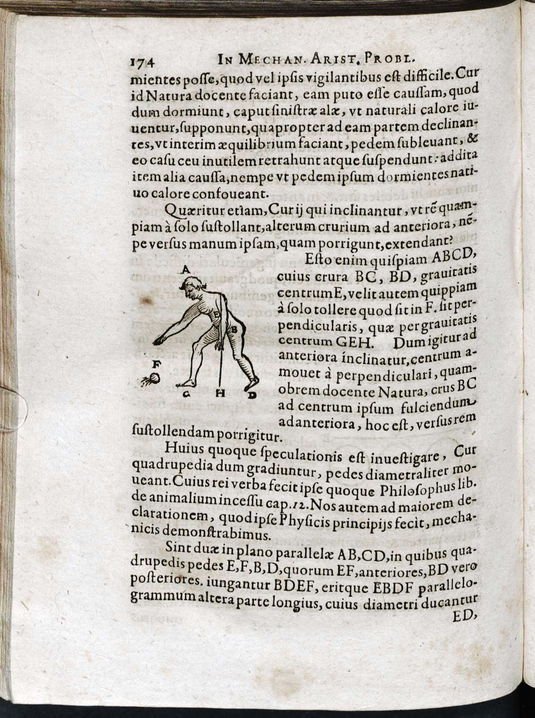 174 IN MECHAN. ARIST. PROBL.
mientes posse, quod vel ipsis vigilantibus est difficile. Cur
id Natura docente faciant, eam puto esse caussam, quod
dum dormiunt, caput sinistræ alæ, vt naturali calore iu-
uentur, supponunt, quapropter ad eam partem declinan-
tes, vt interim æquilibrium faciant, pedem subleuant, &
eo casu ceu inutilem retrahunt atque suspendunt: addita
item alia caussa, nempe vt pedem ipsum dormientes nati-
uo calore confoueant.
Quæritur etiam, Cur ij qui inclinantur, vt rē quam-
piam à solo sustollant, alterum crurium ad anteriora, nē-
pe versus manum ipsam, quam porrigunt, extendant?
Esto enim quispiam ABCD,
cuius crura BC, BD, grauitatis
centrum E, velit autem quippiam
à solo tollere quod sit in F. sit per-
pendicularis, quæ per grauitatis
centrum GEH. Dum igitur ad
anteriora inclinatur, centrum a-
mouet à perpendiculari, quam-
obrem docente Natura, crus BC
ad centrum ipsum fulciendum
ad anteriora, hoc est, versus rem
sustollendam porrigitur.
A
E
B
F
C
H
D
Huius quoque speculationis est inuestigare, Cur
quadrupedia dum gradiuntur, pedes diametraliter mo-
ueant. Cuius rei verba fecit ipse quoque Philosophus lib.
de animalium incessu cap. 12. Nos autem ad maiorem de-
clarationem, quod ipse Physicis principijs fecit, mecha-
nicis demonstrabimus.
Sint duæ in plano parallelæ AB, CD, in quibus qua-
drupedis pedes E, F, B, D, quorum EF, anteriores, BD vero
posteriores. iungantur BDEF, eritque EBDF parallelo-
grammum altera parte longius, cuius diametri ducantur
ED,